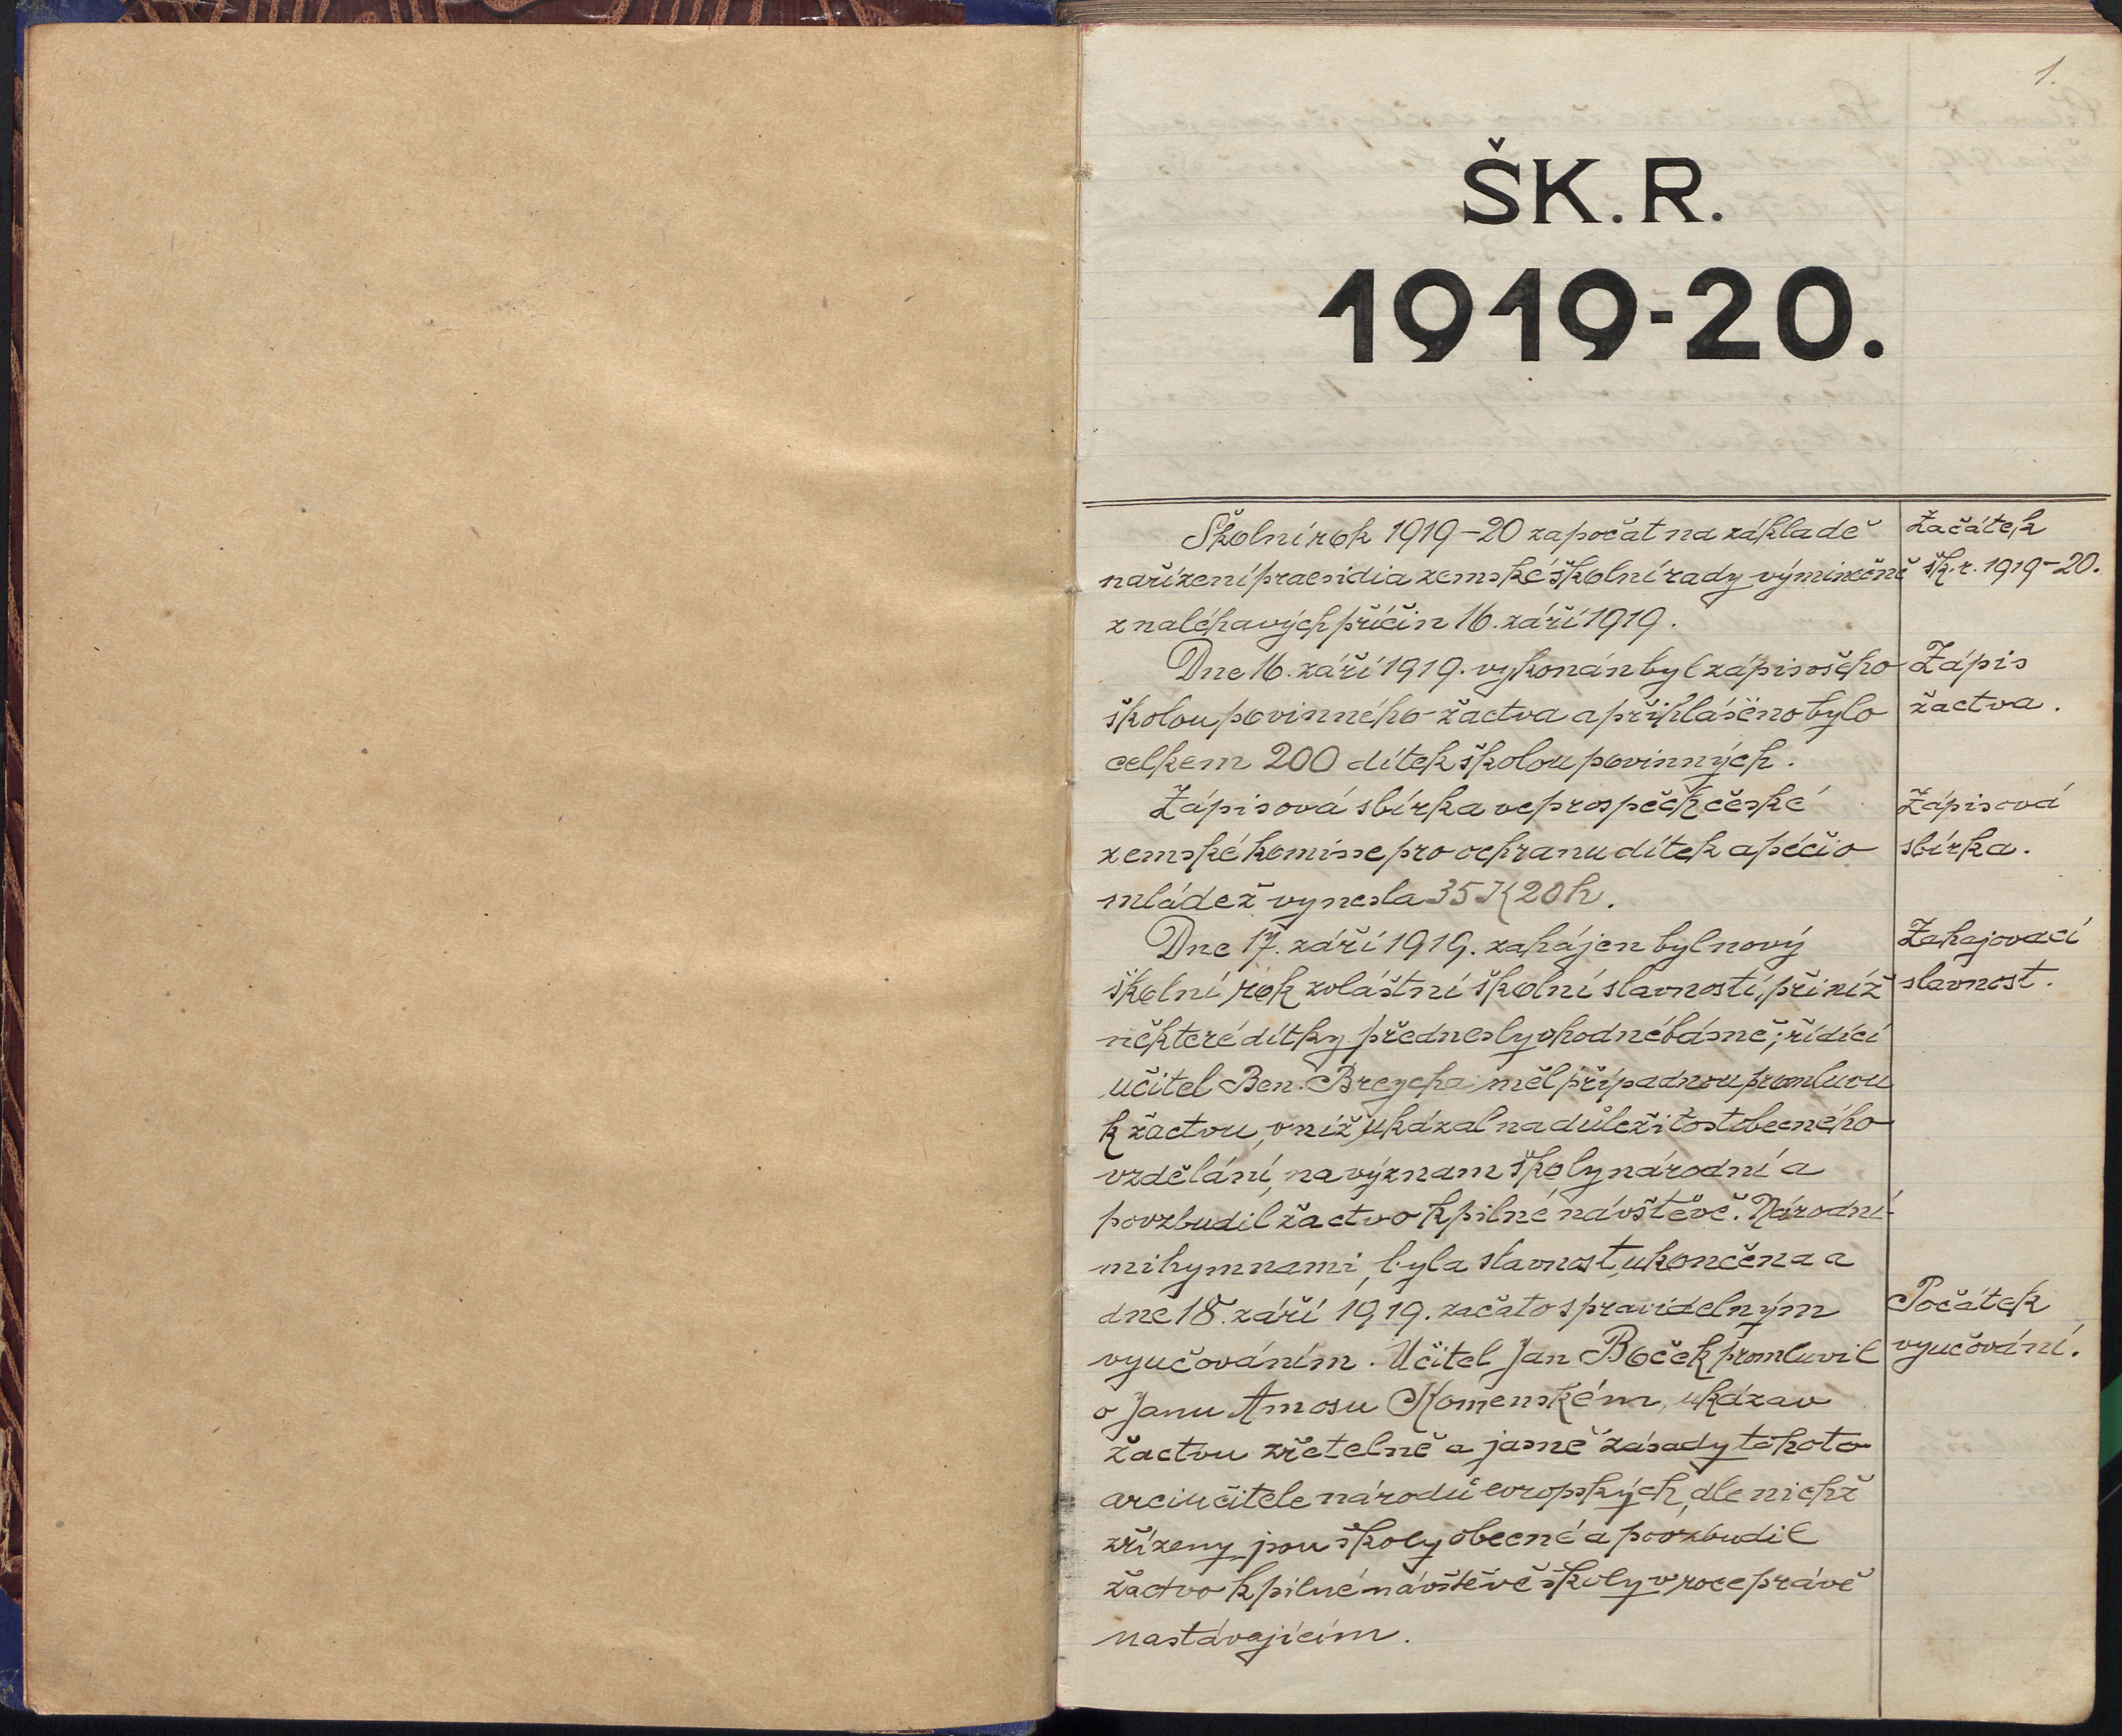 1.
ŠK. R.
1919-20.
Školní rok 1919-20 započat na základě
nařízení praesidia zemské školní rady výminečně
z naléhavých příčin 16. září 1919.
Začátek
šk. r. 1919-20.
Dne 16. září 1919. vykonán byl zápis všeho
školou povinného žactva a přihlášeno bylo
celkem 200 dítek školou povinných.
Zápis
žactva.
Zápisová sbírka ve prospěch české
zemské komisse pro ochranu dítek a péči o
mládež vynesla 35 K 20 h.
Zápisová
sbírka.
Dne 17. září 1919. zahájen byl nový
školní rok zvláštní školní slavností, při níž
některé dítky přednesly vhodné básně; řídící
učitel Ben. Breycha měl případnou promluvu
k žactvu, v níž ukázal na důležitost obecného
vzdělání, na význam školy národní a
povzbudil žactvo k pilné návštěvě. Národní-
mi hymnami byla slavnost ukončena a
dne 18. září 1919. začato s pravidelným
vyučováním. Učitel Jan Boček promluvil
o Janu Amosu Komenském, ukázav
žactvu zřetelně a jasně zásady tohoto
arciučitele národů evropských, dle nichž
zřízeny jsou školy obecné a povzbudil
žactvo k pilné návštěvě školy v roce právě
nastávajícím.
Zahajovací
slavnost.
Počátek
vyučování.